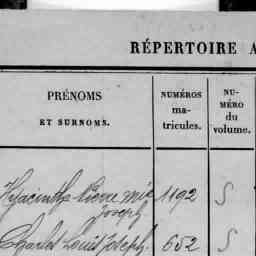 RÉPERTOIRE A
PRÉNOMS
ET SURNOMS.
NUMÉROS
ma-
tricules.
NU-
MÉRO
du
volume.
Hyacinthe Pierre Mie 1192 5
Joseph
Charles Louis Joseph. 652 5